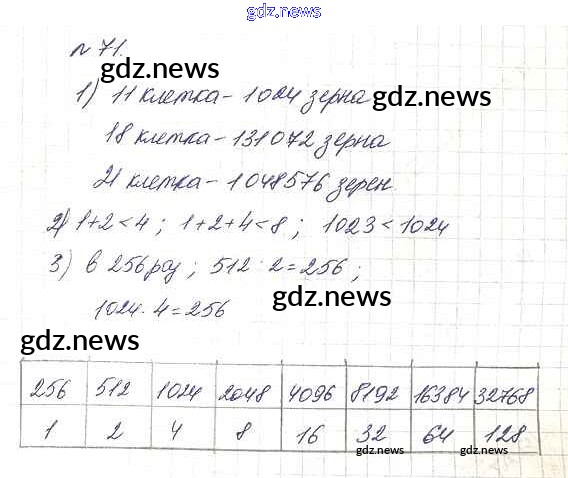 gdz.news
№ 71.
gdz.news
1) 11 клетка – 1024 зерна
gdz.news
18 клетка – 131072 зерна
21 клетка – 1048576 зерен
2) 1+2<4 ; 1+2+4<8 ; 1023<1024
3) в 256 раз ; 512 : 2 = 256 ;
gdz.news
1024 : 4 = 256
gdz.news
256 512 1024 2048 4096 8192 16384 32768
1 2 4 8 16 32 64 128
gdz.news
gdz.news